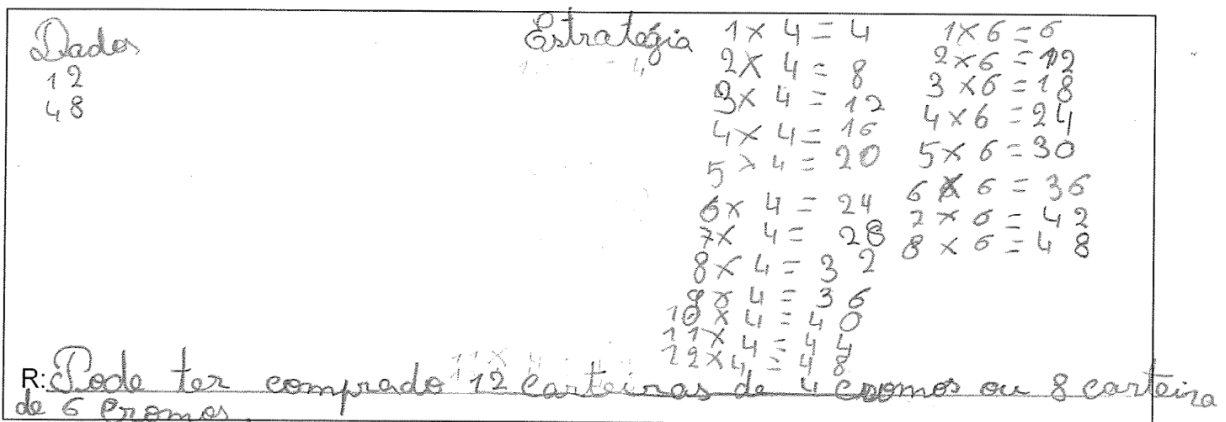 Dados
12
48
Estratégia
1 x 4 = 4
2 x 4 = 8
3 x 4 = 12
4 x 4 = 16
5 x 4 = 20
6 x 4 = 24
7 x 4 = 28
8 x 4 = 32
9 x 4 = 36
10 x 4 = 40
11 x 4 = 44
12 x 4 = 48
1 x 6 = 6
2 x 6 = 12
3 x 6 = 18
4 x 6 = 24
5 x 6 = 30
6 x 6 = 36
7 x 6 = 42
8 x 6 = 48
R: Pode ter comprado 12 carteiras de 4 cromos ou 8 carteira
de 6 cromos.